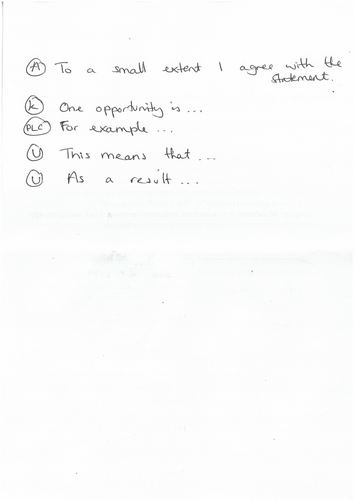 A To a small extent I agree with the
statement.
K One opportunity is ...
PLC For example ...
U This means that ...
U As a result ...